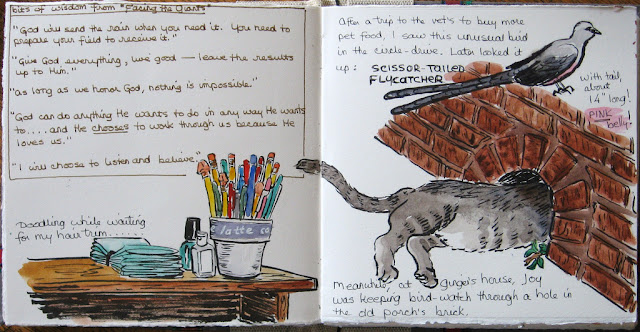 bits of wisdom from "Facing the Giants"
"God will send the rain when you need it. You need to
prepare your field to receive it."
"Give God everything, we good — leave the results
up to Him."
"As long as we honor God, nothing is impossible."
"God can do anything He wants to do in any way He wants
to.... and He chooses to work through us because He
loves us."
"I will choose to listen and believe."
Doodling while waiting
for my hair trim......
latte ca
After a trip to the vet's to buy more
pet food, I saw this unusual bird
in the circle-drive. Later looked it
up: SCISSOR-TAILED
FLYCATCHER
with tail,
about
14" long!
PINK
belly!
Meanwhile, at Ginger's house, Joy
was keeping bird-watch through a hole in
the old porch's brick.